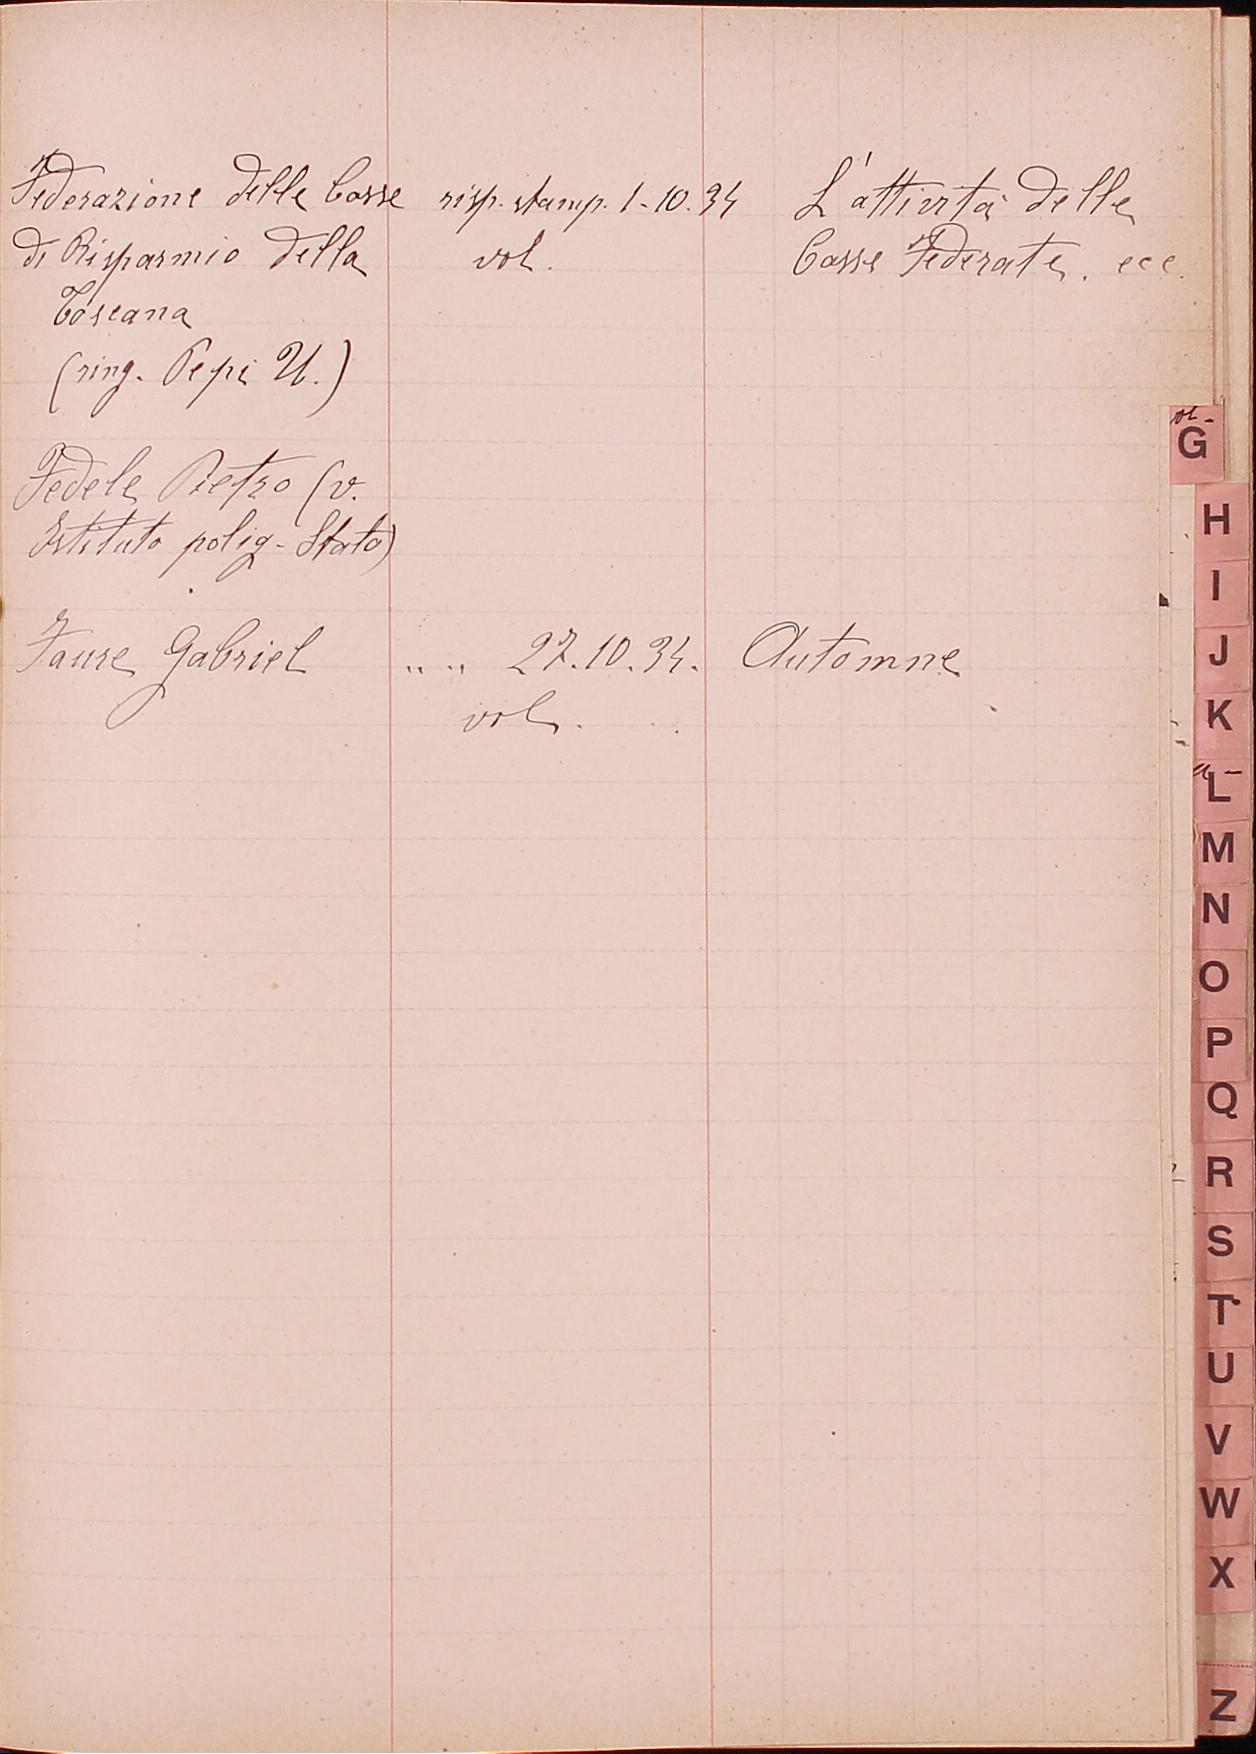 Federazione delle Casse risp. stamp. 1-10.34 L'attività delle
di Risparmio della vol. Casse Federate. ecc.
Toscana
(ring. Pepi U.)
Fedele Pietro (v.
Istituto polig. Stato)
Faure Gabriel " " 27.10.34. Automne
vol.
G
H
I
J
K
L
M
N
O
P
Q
R
S
T
U
V
W
X
Z